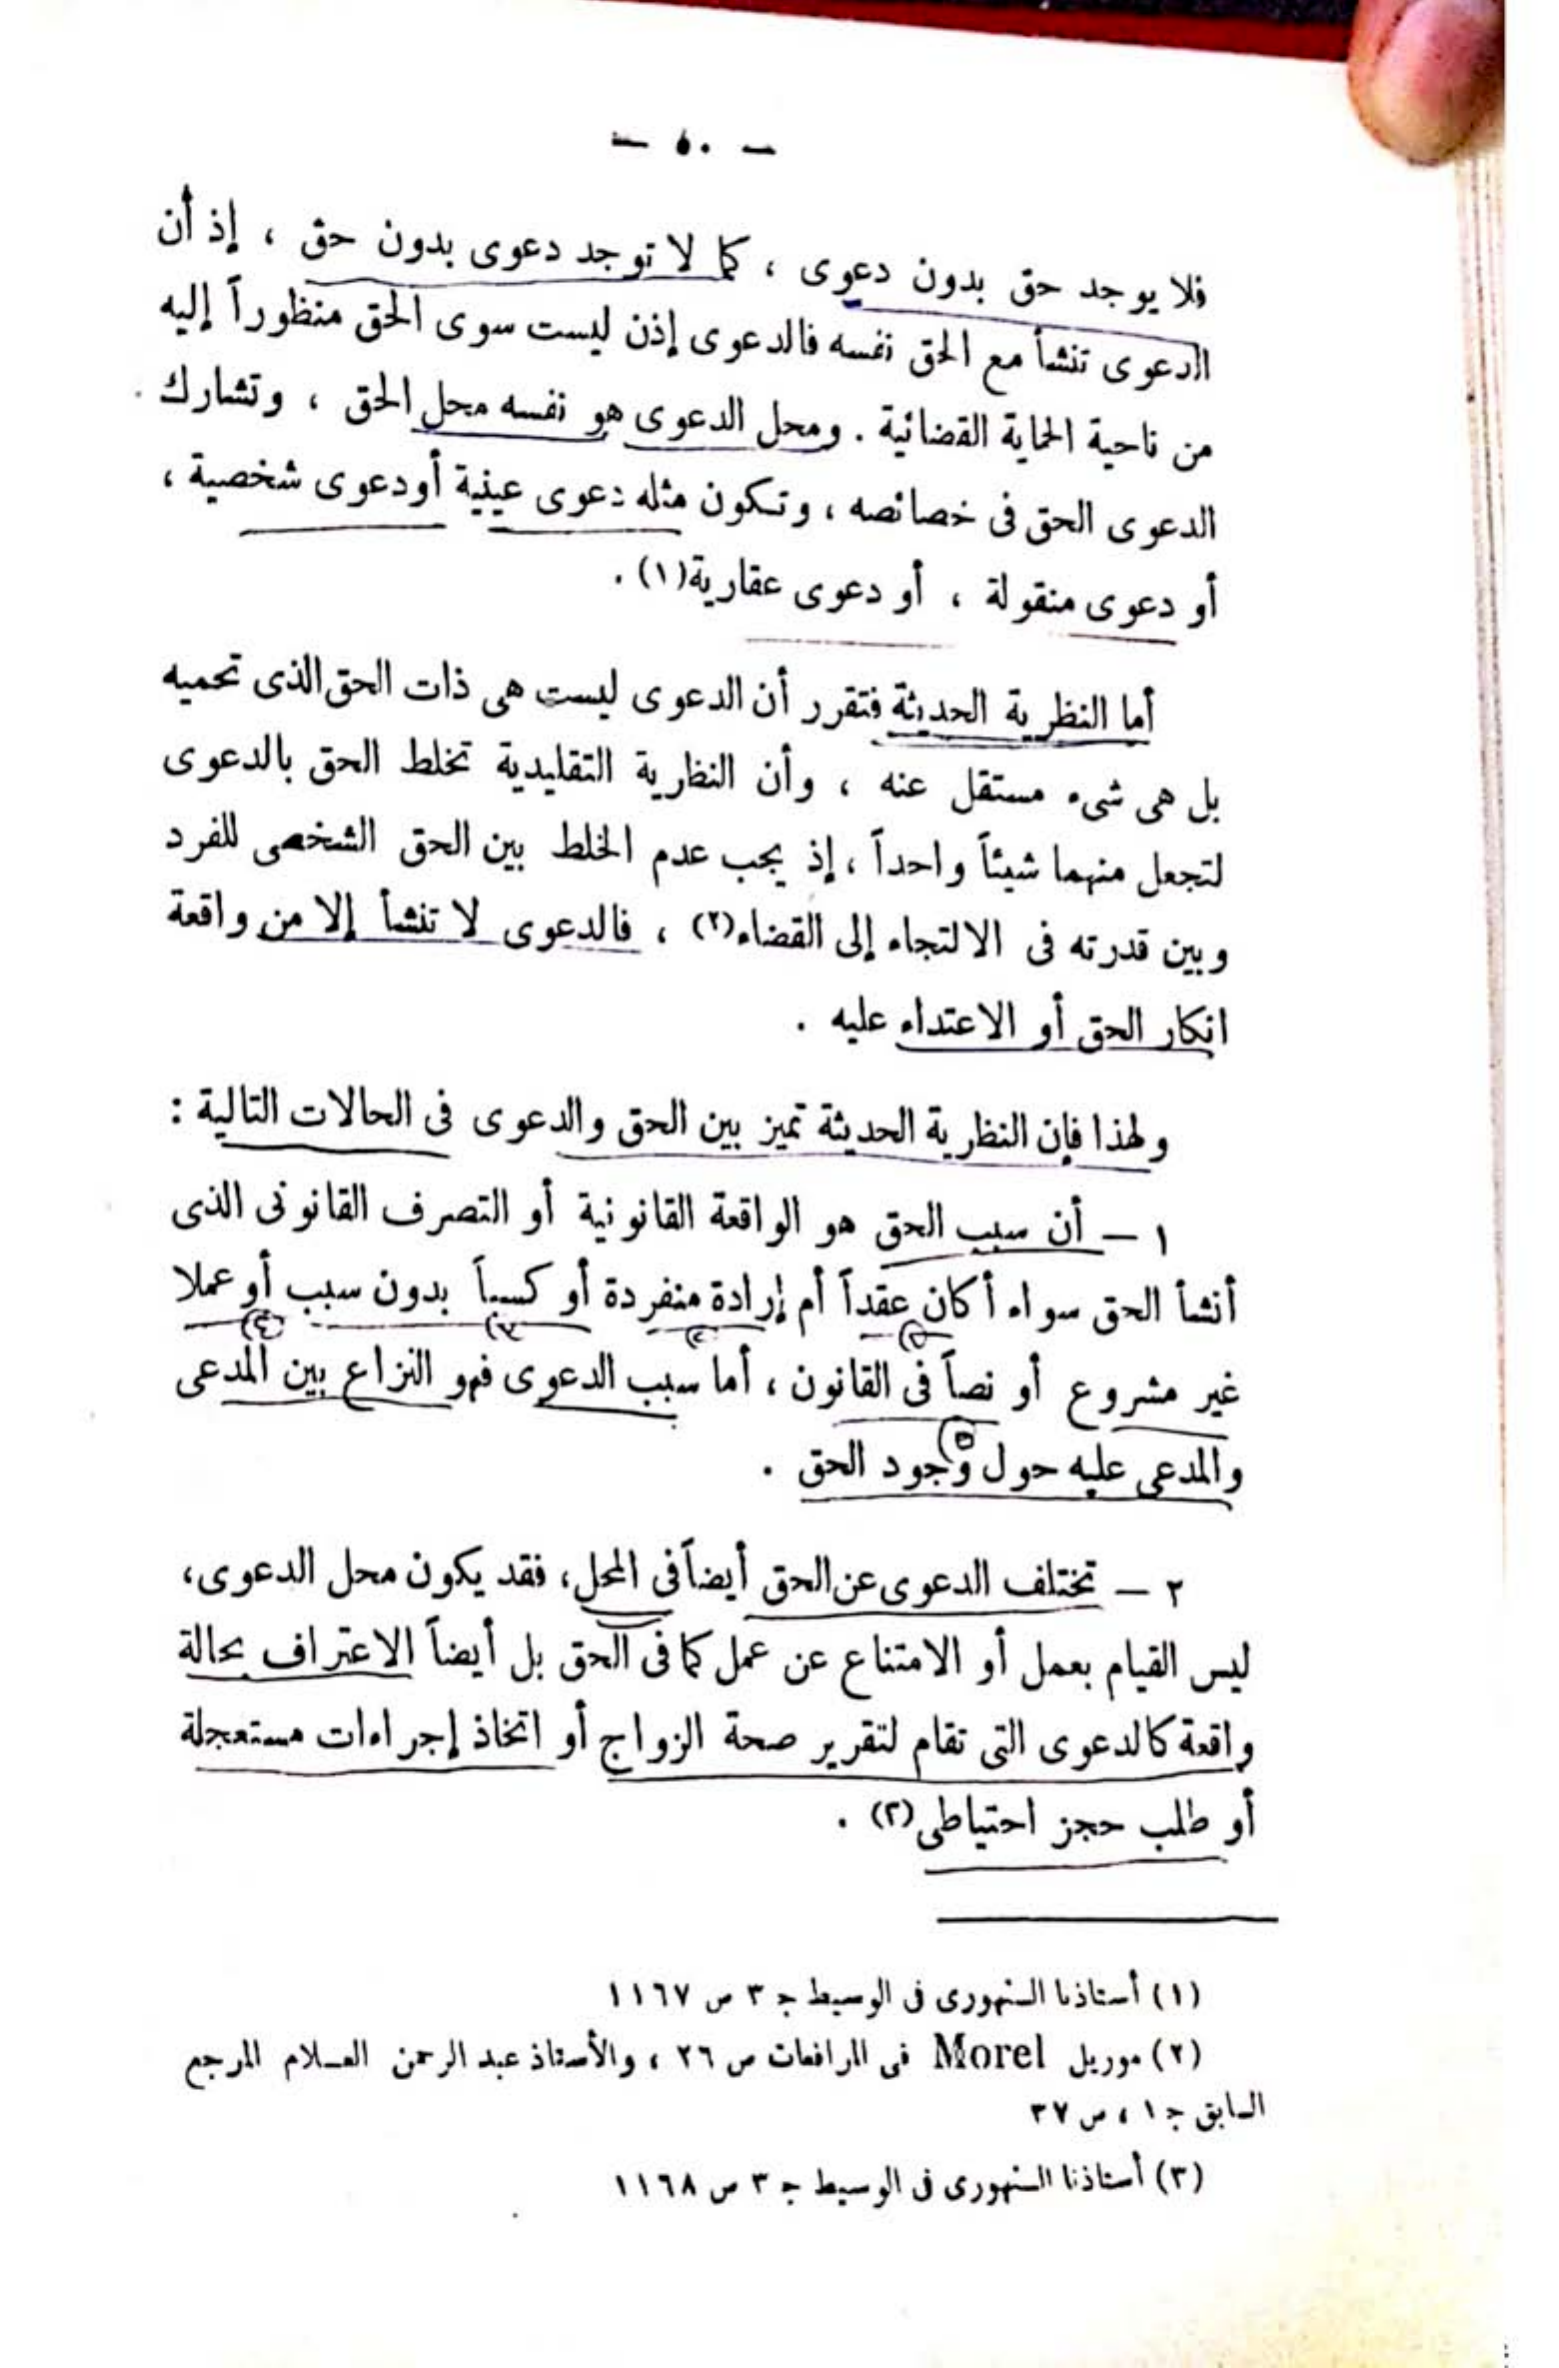 — ٥٠ —
فلا يوجد حق بدون دعوى ، كما لا توجد دعوى بدون حق ، إذ أن
الدعوى تنشأ مع الحق نفسه فالدعوى إذن ليست سوى الحق منظوراً إليه
من ناحية الحماية القضائية . ومحل الدعوى هو نفسه محل الحق ، وتشارك
الدعوى الحق فى خصائصه ، وتكون مثله دعوى عينية أو دعوى شخصية ،
أو دعوى منقولة ، أو دعوى عقارية(١) .
أما النظرية الحديثة فتقرر أن الدعوى ليست هى ذات الحق الذى تحميه
بل هى شىء مستقل عنه ، وأن النظارية التقليدية تخلط الحق بالدعوى
لتجعل منهما شيئاً واحداً ، إذ يجب عدم الخلط بين الحق الشخصى للفرد
وبين قدرته فى الالتجاء إلى القضاء(٢) ، فالدعوى لا تنشأ إلا من واقعة
انكار الحق أو الاعتداء عليه .
ولهذا فإن النظرية الحديثة تميز بين الحق والدعوى فى الحالات التالية :
١ — أن سبب الحق هو الواقعة القانونية أو التصرف القانونى الذى
أنشأ الحق سواء أكان عقداً أم إرادة منفردة أو كسباً بدون سبب أو عملا
غير مشروع أو نصاً فى القانون ، أما سبب الدعوى فهو النزاع بين المدعى
والمدعى عليه حول وجود الحق .
٢ — تختلف الدعوى عن الحق أيضاً فى المحل ، فقد يكون محل الدعوى ،
ليس القيام بعمل أو الامتناع عن عمل كما فى الحق بل أيضاً الاعتراف بحالة
واقعة كالدعوى التى تقام لتقرير صحة الزواج أو اتخاذ إجراءات مستعجلة
أو طلب حجز احتياطى(٣) .
(١) أستاذنا السنهورى فى الوسيط ج ٣ ص ١١٦٧
(٢) موريل Morel فى المرافعات ص ٢٦ ، والأستاذ عبد الرحمن العلام المرجع
السابق ج ١ ، ص ٣٧
(٣) أستاذنا السنهورى فى الوسيط ج ٣ ص ١١٦٨